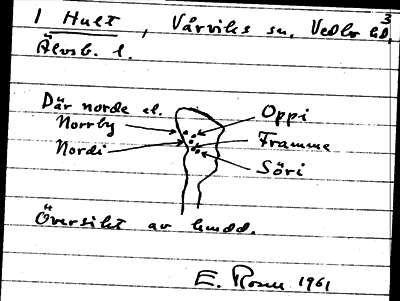 1 Hult, Vårviks sn, Vedbo hd,
3
Älvsb. l.
Där norde el.
Norrby
Nordi
Oppi
Framme
Söri
Översikt av
E. Rosen 1961